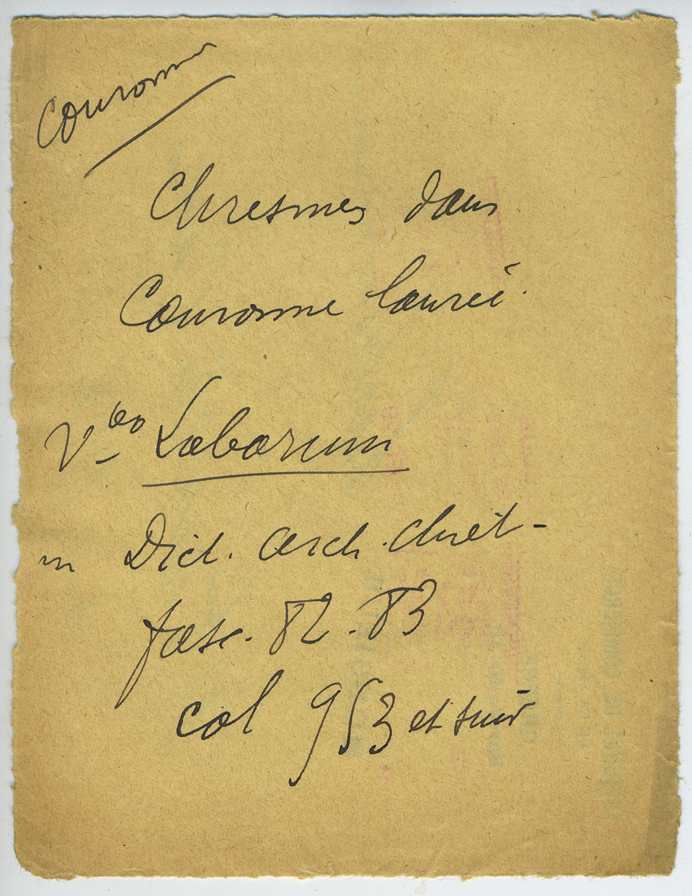 Couronne
Chresmes dans
Couronne laurée.
V° Labarum
in Dict. arch. chrét-
fasc. 82-83
col 953 et suiv